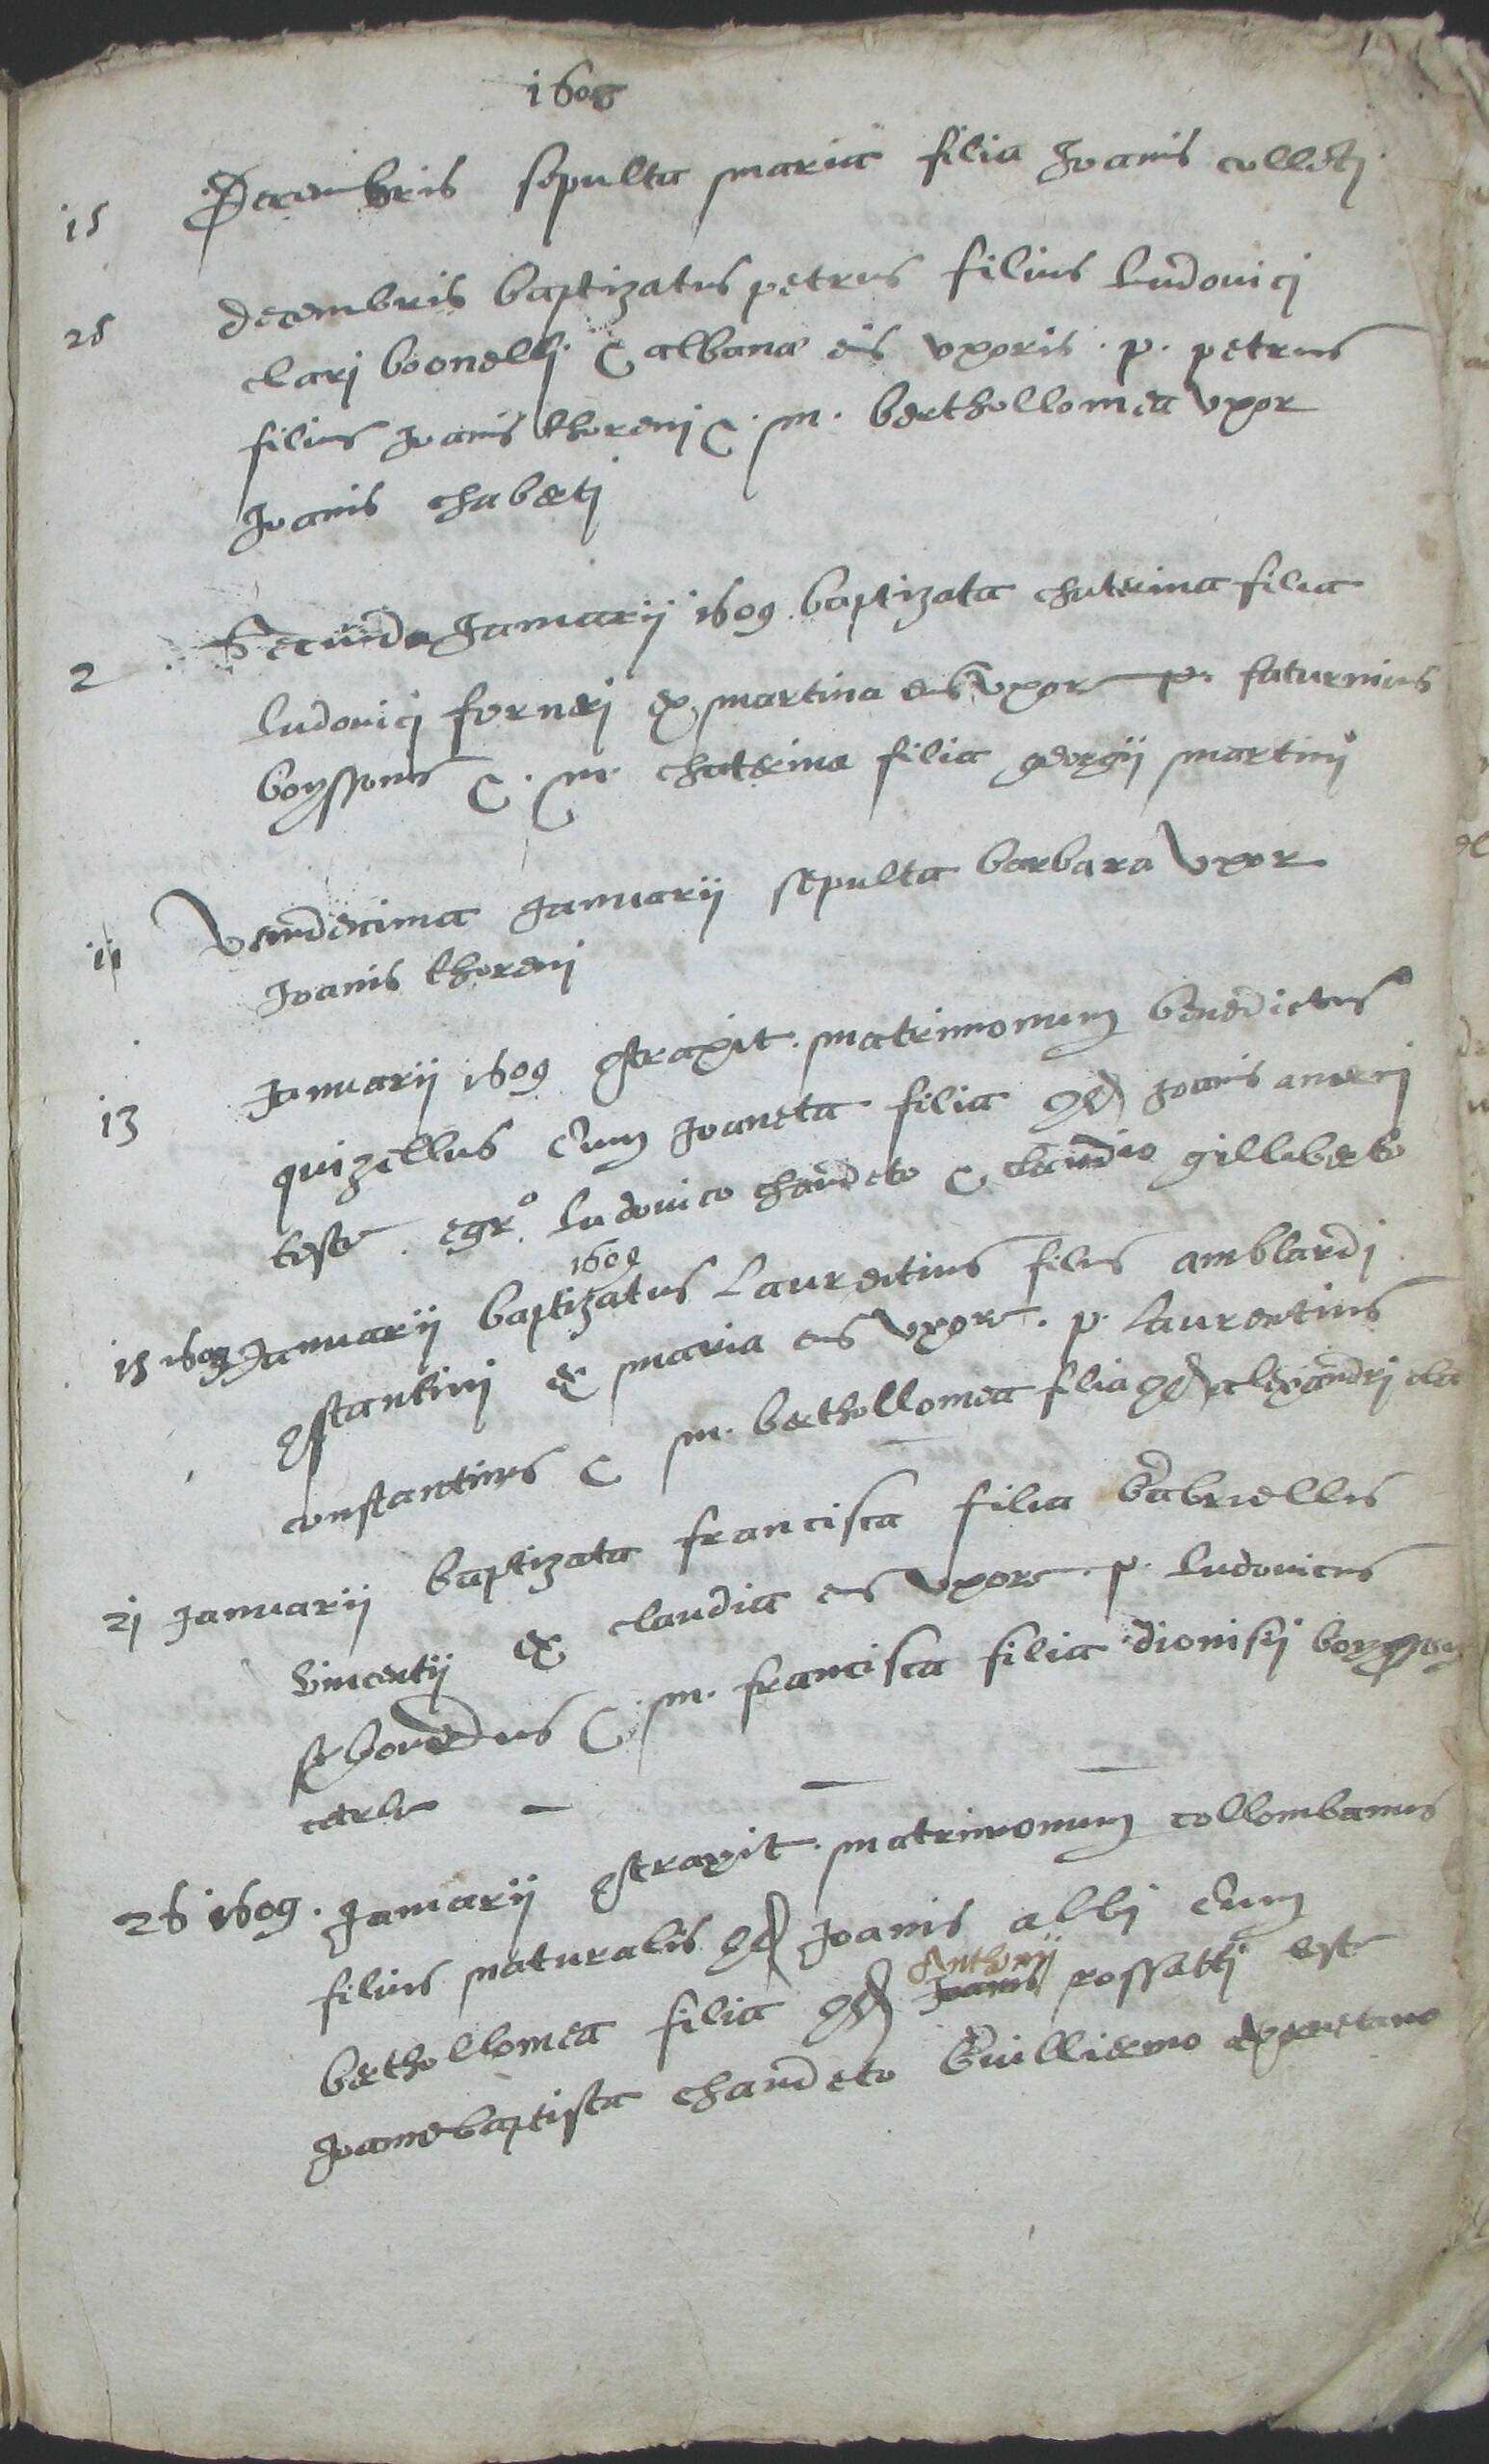 1608
15 Decembris sepulta maria filia Joanis colleti
28 decembris baptizatus petrus filius ludovici
clari boonelli & albanæ eis vxoris . p. petrus
filius Joanis thoreni & . m . berthollomea vxor
Joanis chaberti
2 Secunda Januarij 1609 baptizata chaterina filia
ludovici forneri ex martina eius vxore p. saturnius
boyssonis & . m. chaterina filia georgii martini
11 vendecima Januarij sepulta barbara vxor
Joanis thoreni
13 Januarij 1609 9traxit . matrimonium benedictus
quizellus cum Joaneta filia qd Joanis ameri
teste . egr.o ludovico chardeto & claudio gilliberto
1609
15 1609 Januarij baptizatus Laurentius filius amblardi
9stantini ex maria eius vxore . p. laurentius
constantinus & m. berthollomea filia qd alexandri cla
21 Januarij baptizata francisca filia Gabriellis
vincentij ex claudia eius vxore . p. ludovicus
& . m. francisca filia dionisij
26 1609 . Januarij 9traxit . matrimonium collombanus
filius naturalis qd Joanis albi cum
Anthonij
berthollomea filia qd Joanis rossatti
Joannebaptista chardeto Guilliermo